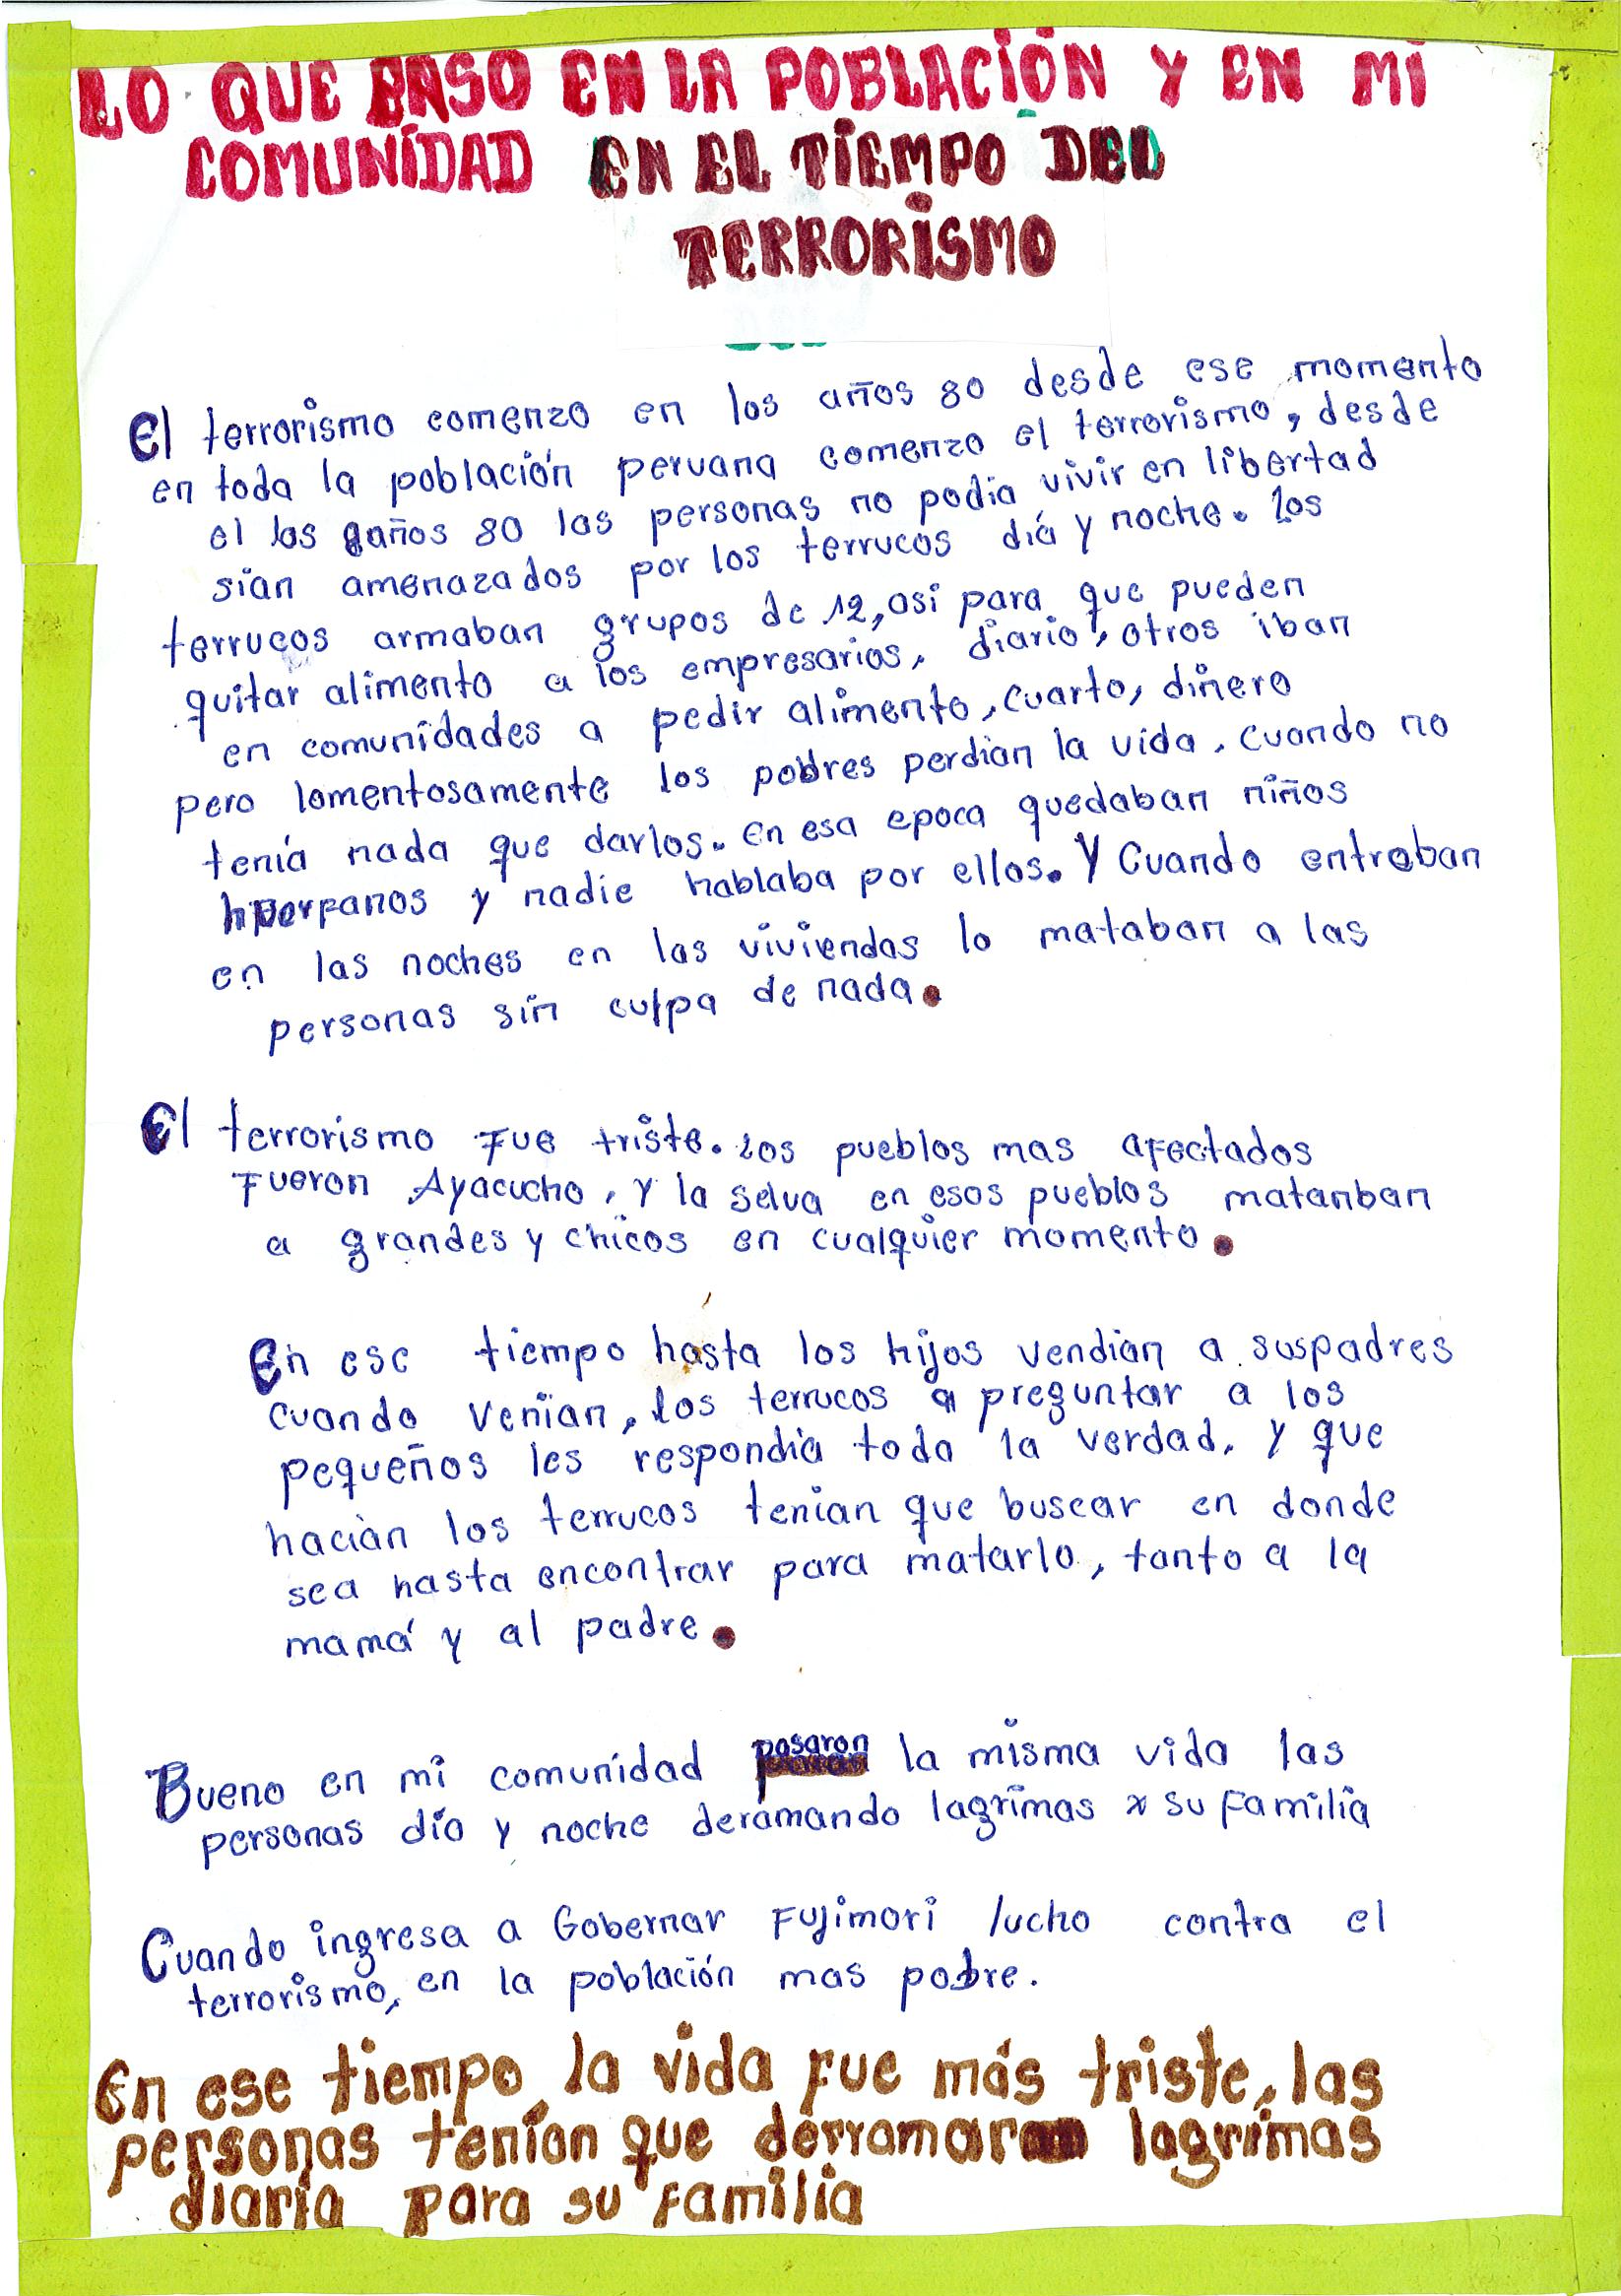 LO QUE PASO EN LA POBLACIÓN Y EN MI
COMUNIDAD EN EL TIEMPO DEL
TERRORISMO
El terrorismo comenzo en los años 80 desde ese momento
en toda la población peruana comenzo el terrorismo, desde
el los años 80 las personas no podia vivir en libertad
sian amenazados por los terrucos dia y noche. Los
terrucos armaban grupos de 12, asi para que pueden
quitar alimento a los empresarios, diario, otros iban
en comunidades a pedir alimento, cuarto, dinero
pero lomentosamente los pobres perdian la vida, cuando no
tenia nada que darlos. En esa epoca quedaban niños
huerfanos y nadie hablaba por ellos. Y Cuando entraban
en las noches en las viviendas lo mataban a las
personas sin culpa de nada.
El terrorismo fue triste. Los pueblos mas afectados
fueron Ayacucho, y la selva en esos pueblos matanban
a grandes y chicos en cualquier momento.
En ese tiempo hasta los hijos vendian a suspadres
cuando venian, los terrucos a preguntar a los
pequeños les respondia toda la verdad, y que
hacian los terrucos tenian que buscar en donde
sea hasta encontrar para matarlo, tanto a la
mamá y al padre.
Bueno en mi comunidad pasaron la misma vida las
personas día y noche deramando lagrimas x su familia
Cuando ingresa a Gobernar Fujimori lucho contra el
terrorismo, en la población mas pobre.
En ese tiempo, la vida fue más triste, las
personas tenían que derramar lagrimas
diaria para su familia